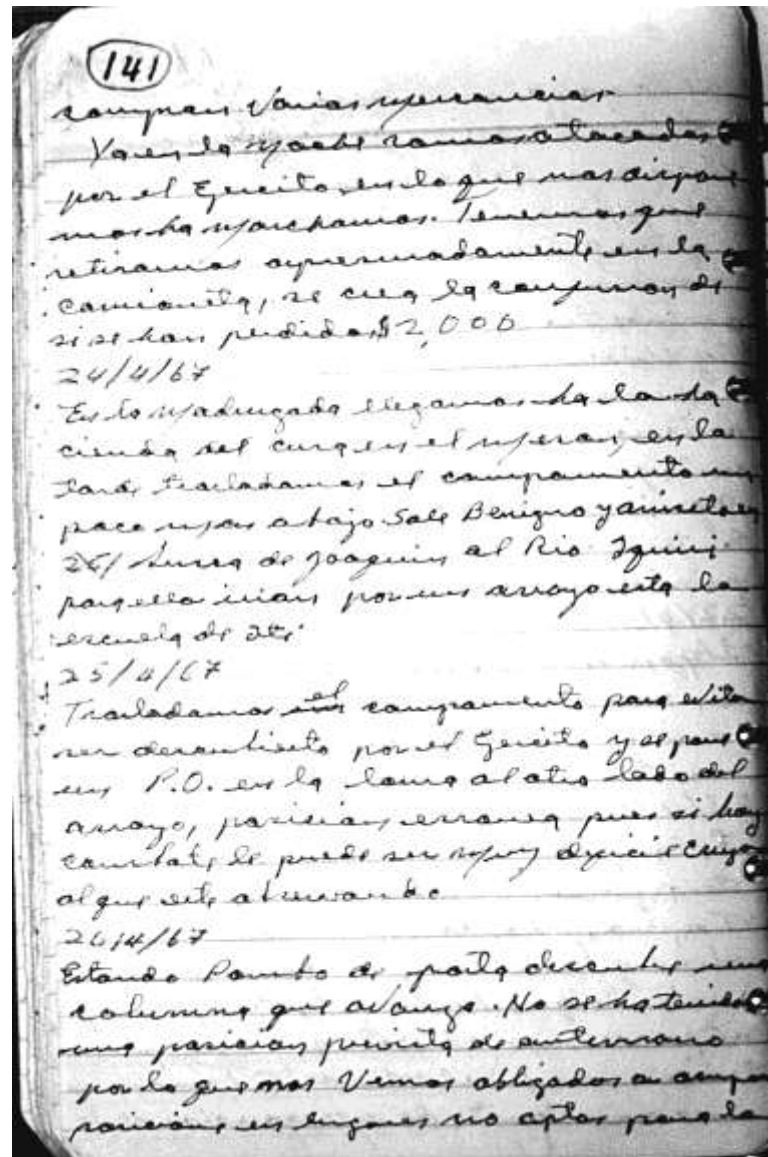 141
compran varias mercancias
Ya en la noche somos atacados
por el Ejercito, en lo que nos dispone
mos ha marcharnos. Tenemos que
retirarnos apresuradamente en la
camioneta, se crea la confusion de
si se han perdido $2,000
24/4/67
En la madrugada llegamos ha la ha
cienda del cura en el meson, en la
tarde trasladamos el campamento un
poco mas abajo Sale Benigno y aniceto en
26/ busca de Joaquin al Rio Iquiri
para ello irian por un arroyo esta la
escuela de Iti
25/4/67
Trasladamos el campamento para evitar
ser descubierto por el Ejercito y se pone
un P.O. en la loma al otro lado del
arroyo, posicion erronea pues si hay
combate le puede ser muy dificil
al que este observando
26/4/67
Estando Pombo de posta descubre una
columna que avanza. No se ha tenido
una posicion prevista de antemano
por lo que nos Vemos obligados a ocupar
posicione en lugares no aptos para la